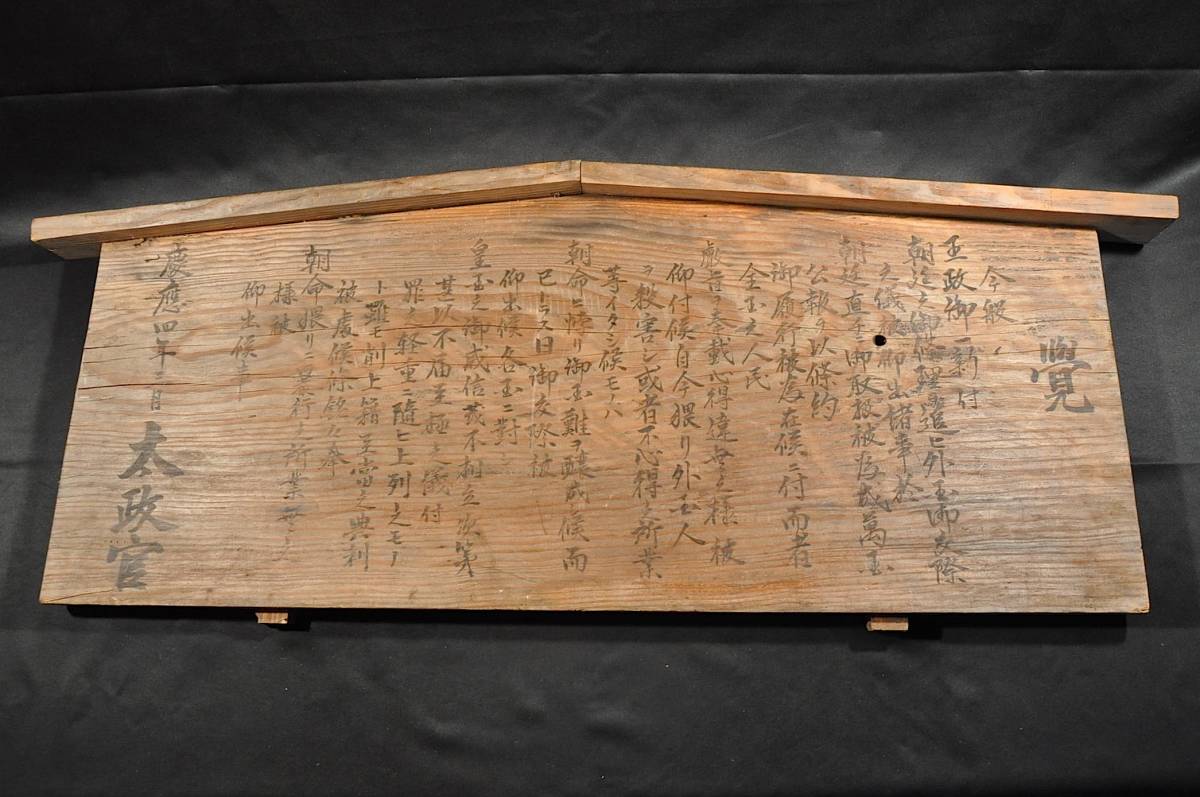 覺
今般
王政御一新付
朝廷之御條理追ヒ外国御交際
之儀被仰出諸事於
朝廷直チ御取扱被為成萬国
公報ヲ以條約
御履行被為在候ニ付而者
全国之人民
叡旨ヲ奉戴心得違無之様被
仰付候自今猥リ外国人
ヲ殺害シ或者不心得之所業
等イタシ候モノハ
朝命ニ悖リ御国難ヲ醸成候而
巳トラス旦御交際被
仰出候各国ニ對シ
皇国之御威信茂不相立次第
甚以不届至極之儀付
罪之軽重随ヒ士列之モノ
ト雖モ削士籍至當之典刑
被處候條銘々奉
朝命猥リニ暴行之所業無之
様被
仰出候事
慶應四年三月
太政官